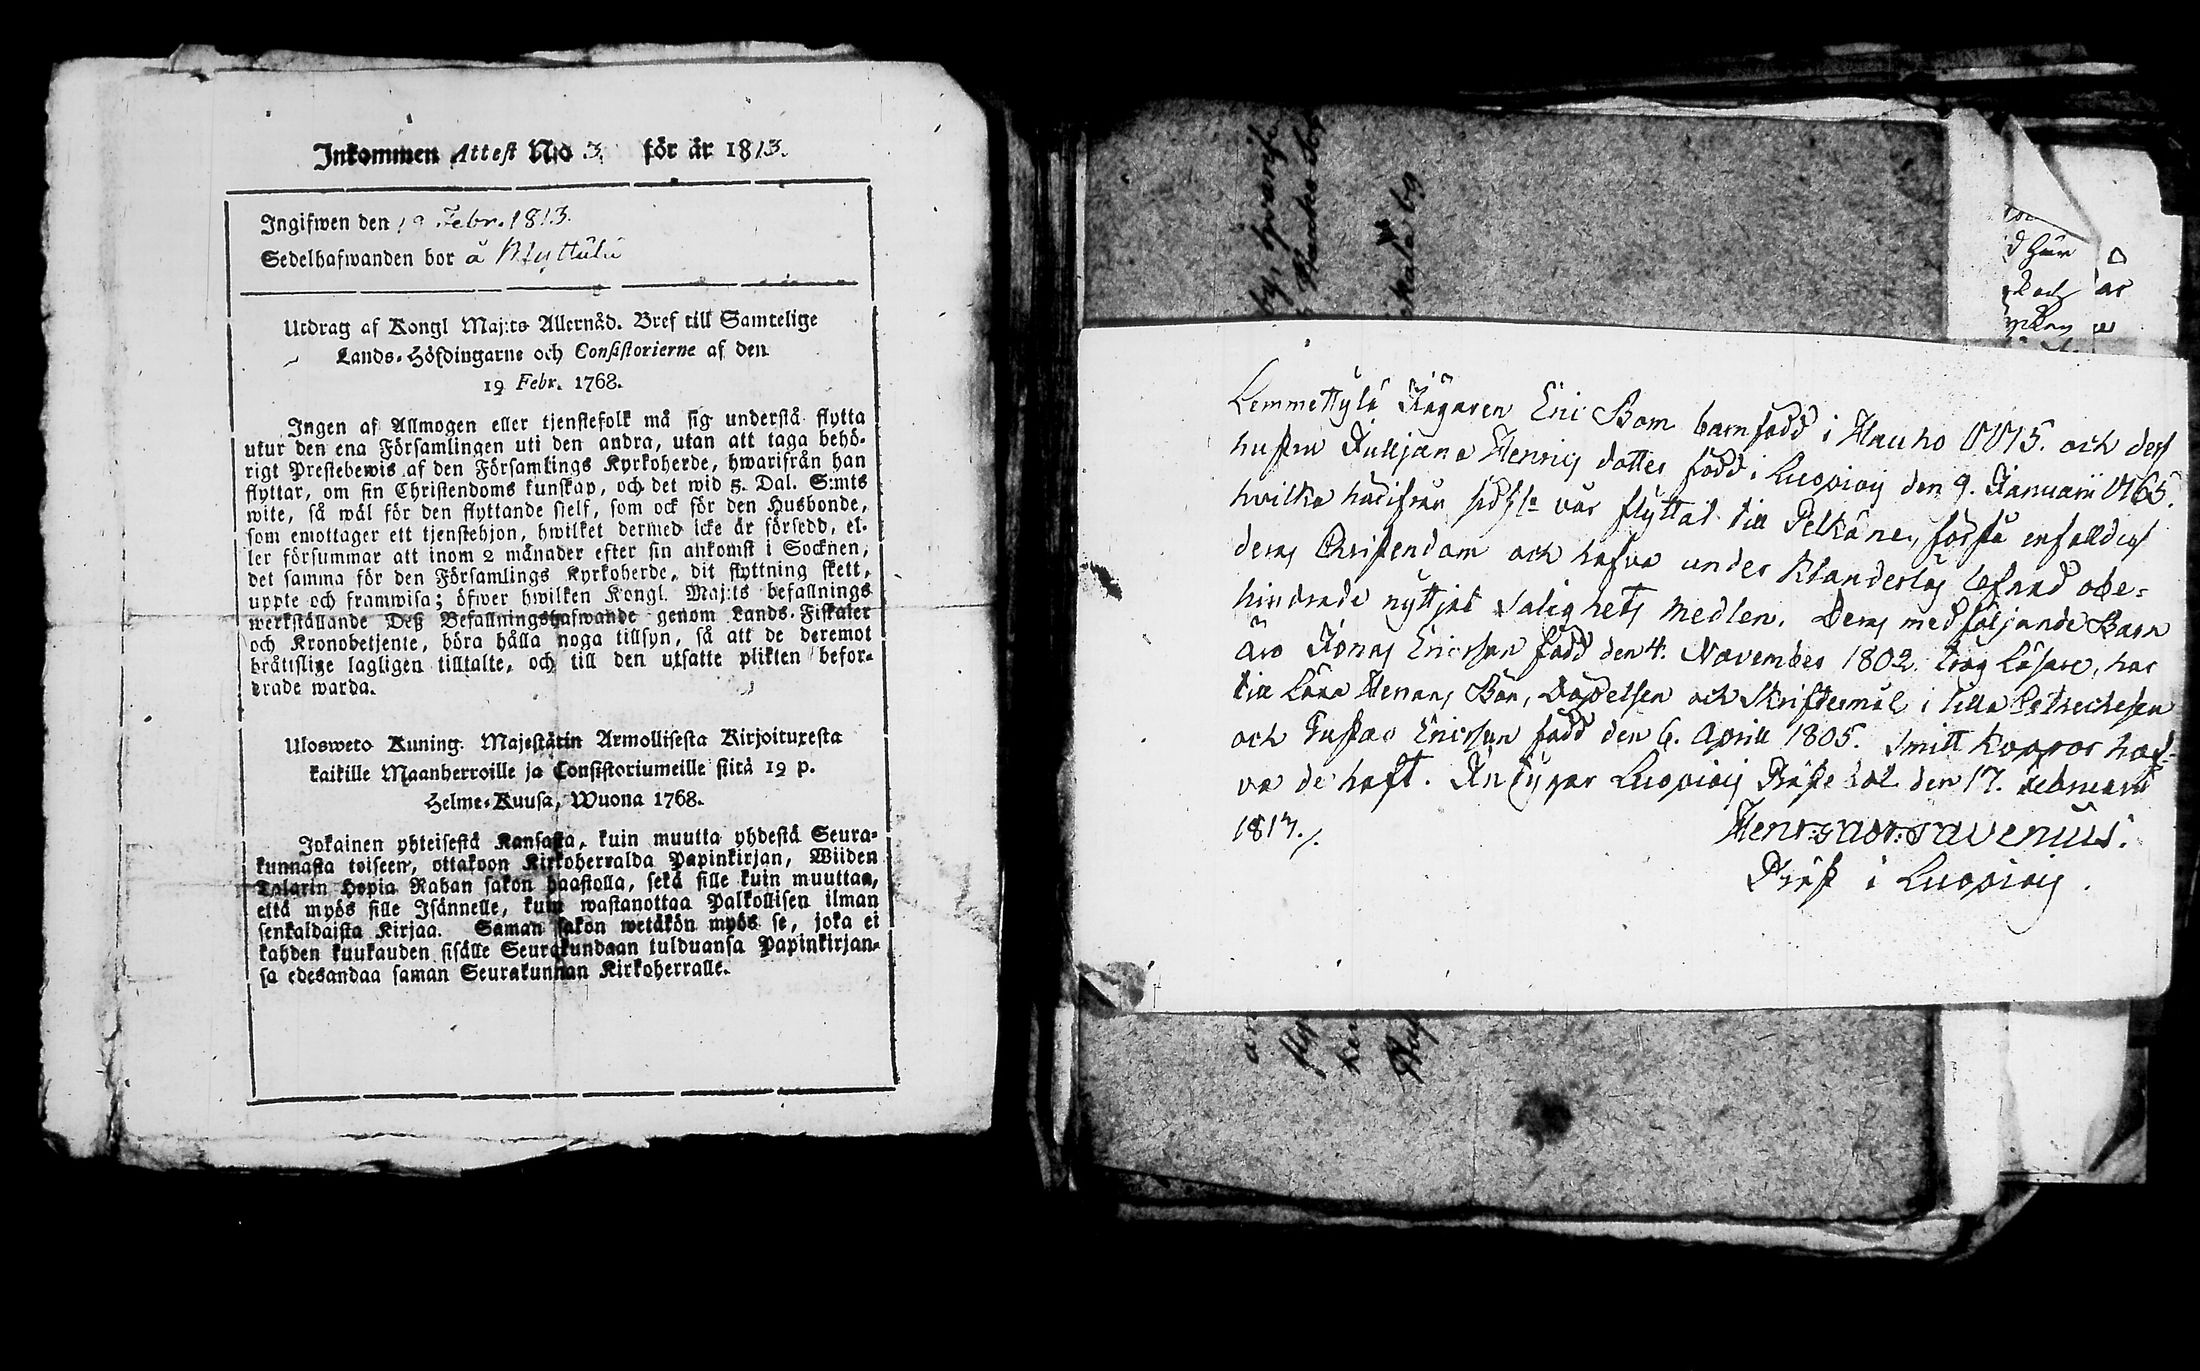 Inkommen Attest No 3. för år 1813.
Ingifwen den 19 Febr. 1813.
Sedelhafwanden bor å Myttälä
Utdrag af Kongl Maj:ts Allernåd. Bref till Samtelige
Lands-Höfdingarne och Consistorierne af den
19 Febr. 1768.
Ingen af Allmogen eller tjenstefolk må sig understå flytta
utur den ena Församlingen uti den andra, utan att taga behö-
rigt Prestebewis af den Församlings Kyrkoherde, hwarifrån han
flyttar, om sin Christendoms kunskap, och det wid 5. Dal. S:mts
wite, så wäl för den flyttande sielf, som ock för den Husbonde,
som emottager ett tjenstehjon, hwilket dermed icke är försedd, el-
ler försummar att inom 2 månader efter sin ankomst i Socknen,
det samma för den Församlings Kyrkoherde, dit flyttning skett,
uppte och framwisa; öfwer hwilken Kongl. Maj:ts befallnings
werkställande Deß Befallningshafwande genom Lands-Fiskaler
och Kronobetjente, böra hålla noga tillsyn, så att de deremot
bråttslige lagligen tilltalte, och till den utsatte plikten befor-
drade warda.
Ulosweto Kuning. Majestätin Armollisesta Kirjoituxesta
kaikille Maanherroille ja Consistoriumeille siitä 19 p.
Helme-Kuusa, Wuona 1768.
Jokainen yhteisestä Kansasta, kuin muutta yhdestä Seura-
kunnasta toiseen, ottakoon Kirkoherralda Papinkirjan, Wiiden
Talarin Hopia Rahan sakon haastolla, sekä sille kuin muuttaa,
että myös sille Isännelle, kuin wastanottaa Palkollisen ilman
senkaldaista Kirjaa. Saman sakon wetäkön myös se, joka ei
kahden kuukauden sisälle Seurakundaan tulduansa Papinkirjan-
sa edesandaa saman Seurakunnan Kirkoherralle.
Lemmettylä Eric Bom barnfödd i Hauho 1775. och deß
hustru Julljana Henrics dotter född i Luopiois den 9. Januarii 1765.
hvilka härifrån sidstl. vår flyttat till Pelkäne, förstå enfalldigt
deras Christendom och hafva under klanderlös lefnad obe-
hindrade nyttjat Salighets medlen. Deras medföljande Barn
äro Jonas Ericsson född den 4. November 1802. trög Läsare, har
till Lära Herrans Bön, Döpelsen och Skriftermål i Lilla Cathechesen
och Gustav Ericsson född den 6. Aprill 1805. Smitt Koppor haf-
va de haft. Luopiois Prästebol den 17. Februarii
1813./.
Henr: Savenius.
Präst i Luopiois.